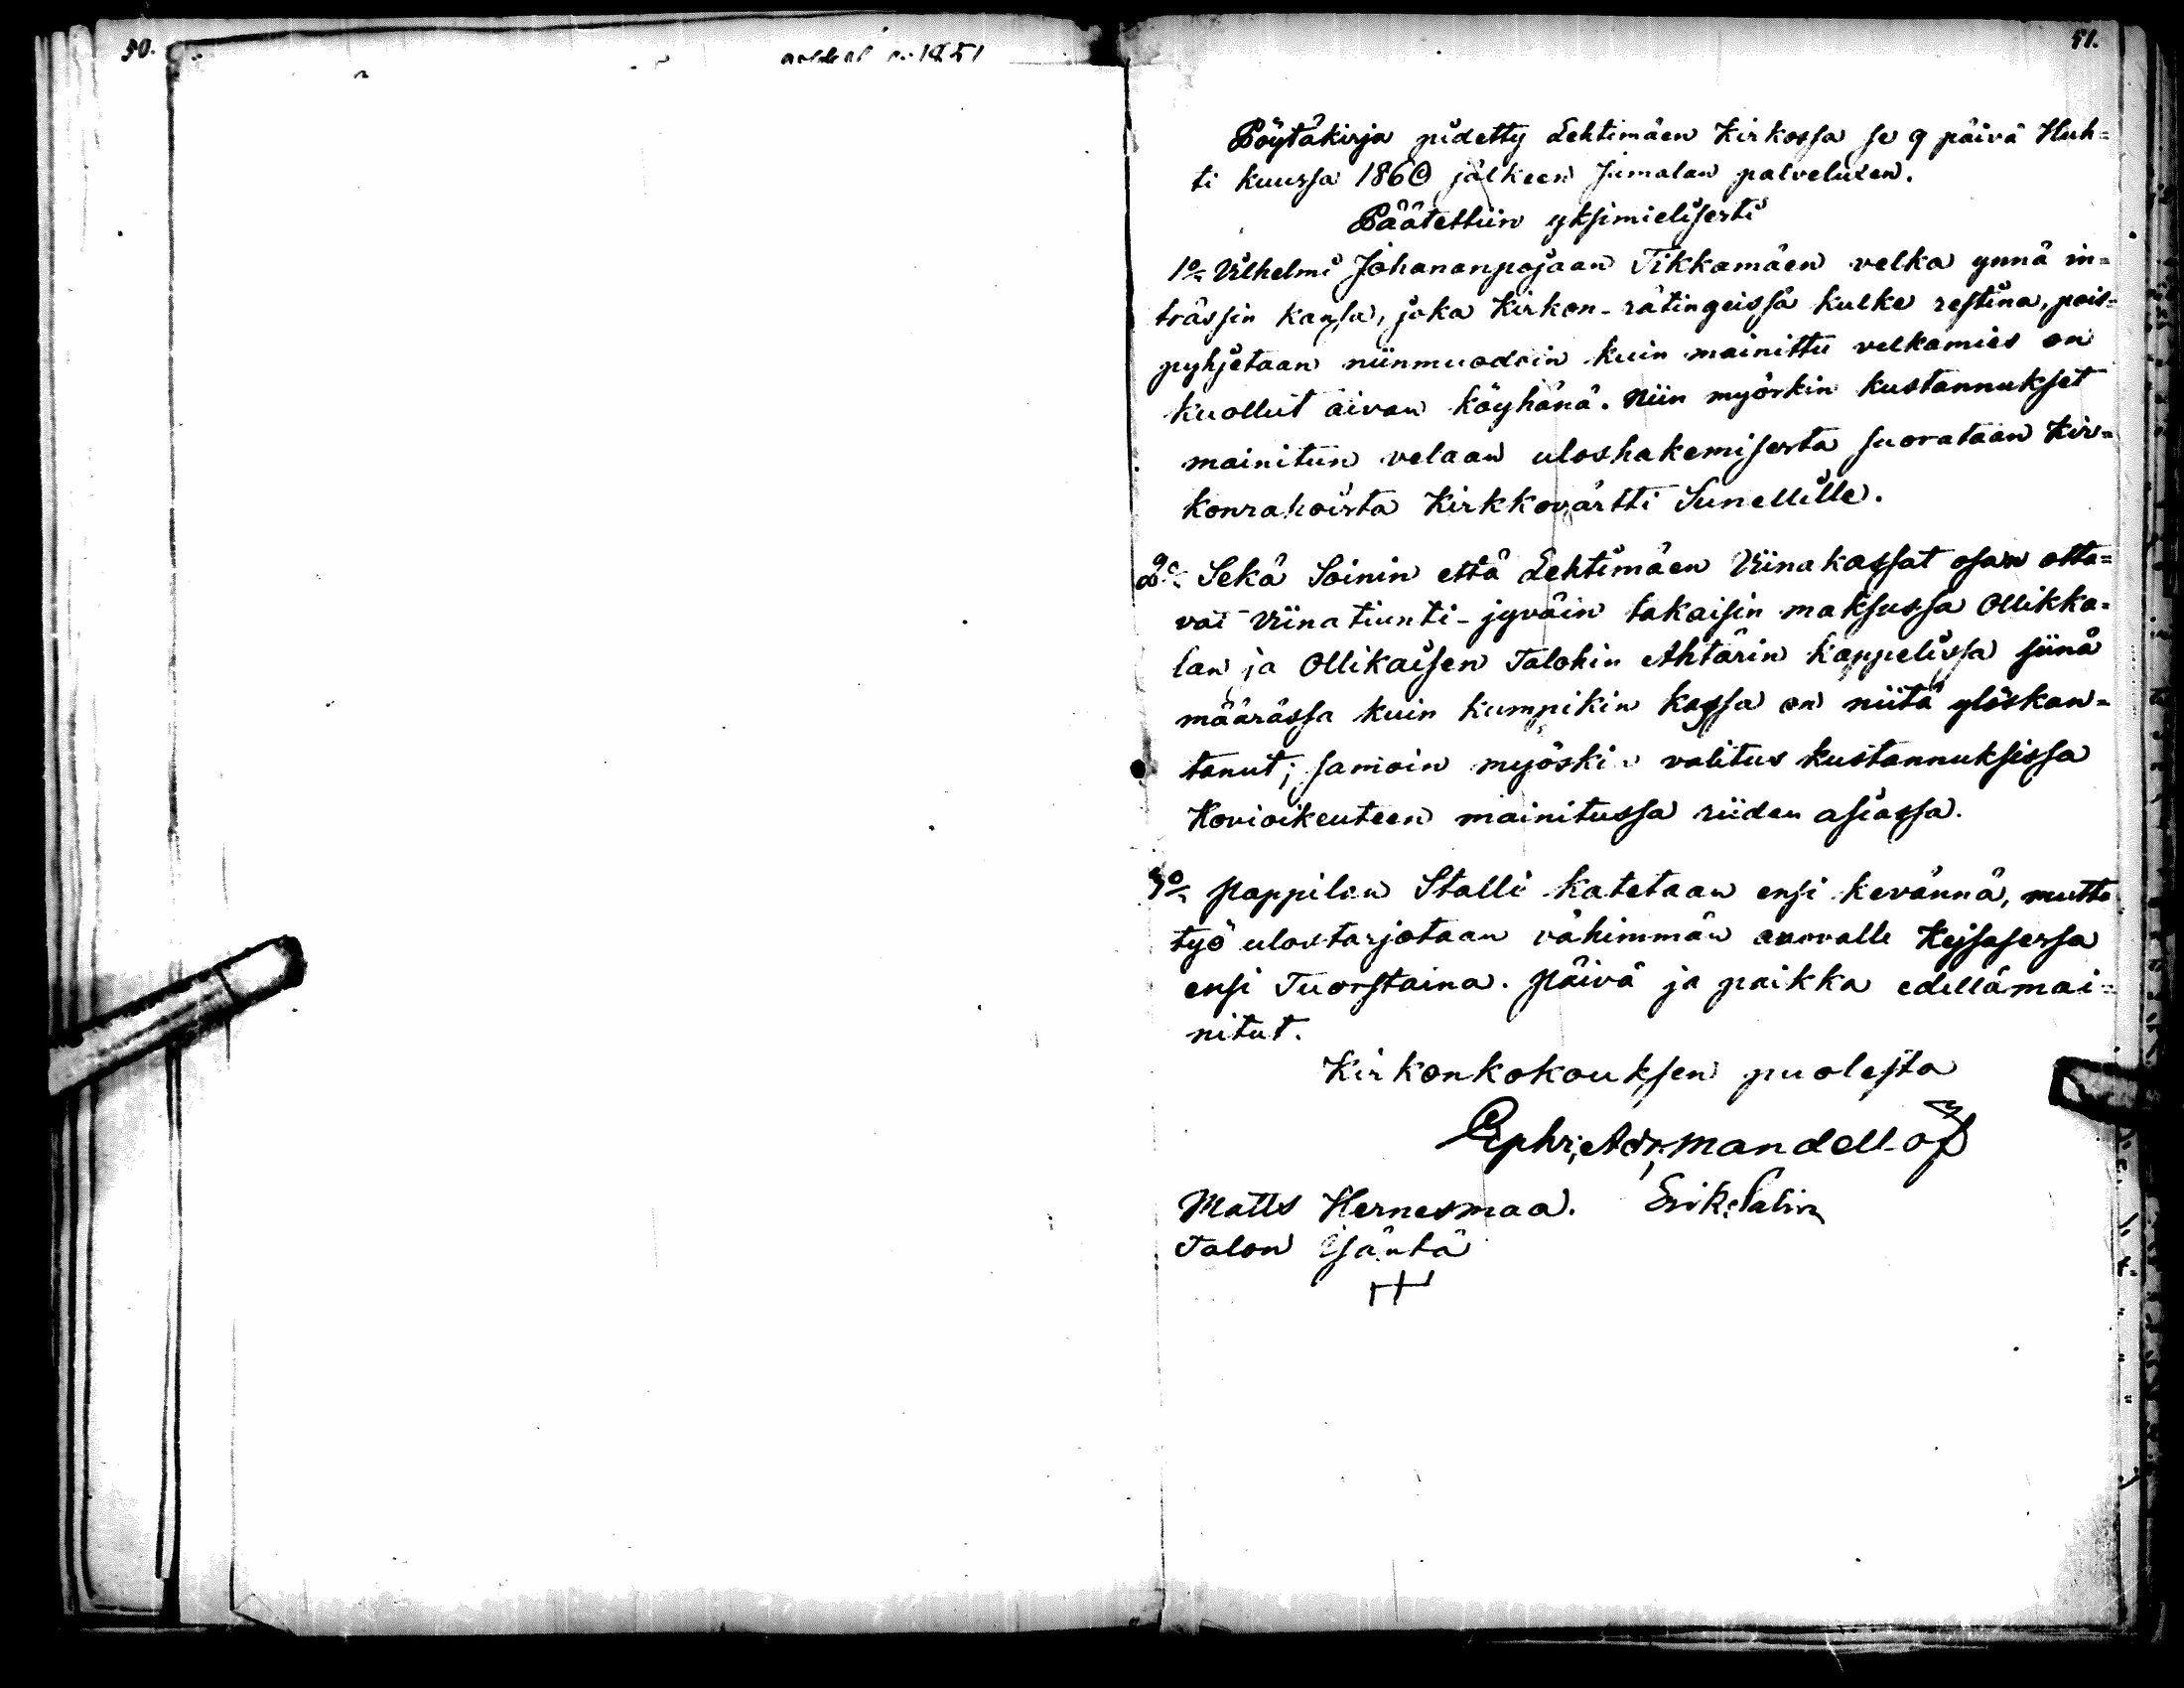 50.
1851
51.
Pöytäkirja pidetty Lehtimäen Kirkossa se 9 päivä Huh=
ti kuussa 1860 jälkeen Jumalan palveluxen.
Päätettiin yksimielisesti
1o Vilhelmi Johananpojaan Tikkamäen velka ynnä in=
trässin kansa, joka Kirkon-rätingeissä kulke restina, pois=
pyhjetaan niinmuodoin kuin mainittu velkamies on
kuollut aivan köyhänä. Niin myöskin kustannukset
mainitun velaan uloshakemisesta suorataan Kir=
konrahoista Kirkkovärtti Sunellille.
2o Sekä Soinin että Lehtimäen Viinakassat osan otta=
vat Viinatiunti-jyväin takaisin maksussa Ollikka=
lan ja Ollikaisen Talohin Ahtärin kappelissa siinä
määrässä kuin kumpikin kassa on niitä ylöskan=
tanut; samoin myöskin valitus kustannuksissa
Hovioikeuteen mainitussa riiden asiassa.
3o Pappilan Stalli katetaan ensi kevännä, mutta
työ ulostarjotaan vähimmän anovalle Kejsasessa
ensi Tuorstaina. Päivä ja paikka edellämai=
nitut.
Kirkonkokouksen puolesta
Ephr. Adr. Mandellöf
Matts Hernesmaa. Erik Palin
Talon Isäntä